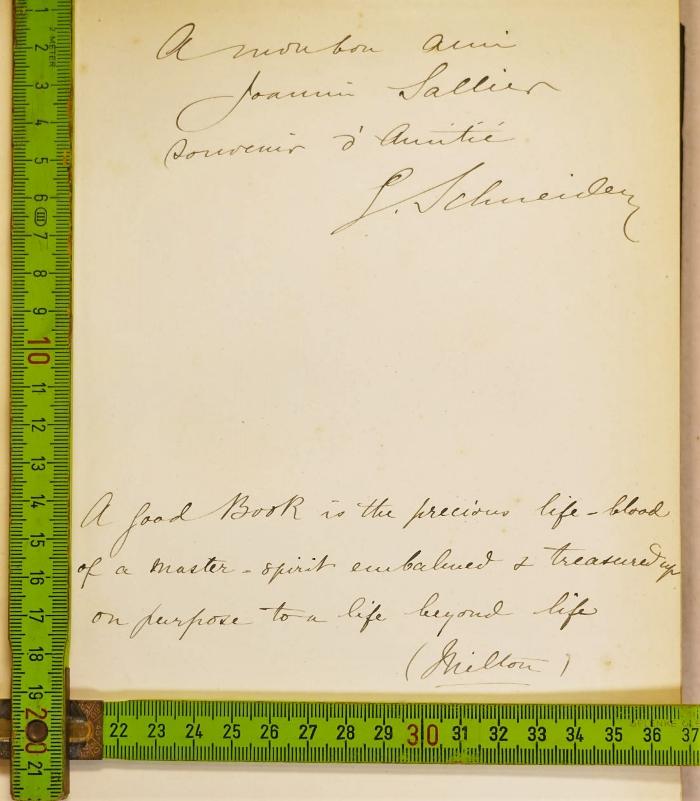 A mon bon ami
Joannin Sallier
souvenir d'Amitié
G. Schneider
A good Book is the precious life-blood
of a master-spirit embalmed & treasured up
on purpose to a life beyond life
(Milton)
1
2
3
4
5
6
7
8
9
10
11
12
13
14
15
16
17
18
19
20
21
2 METER
22 23 24 25 26 27 28 29 30 31 32 33 34 35 36 37